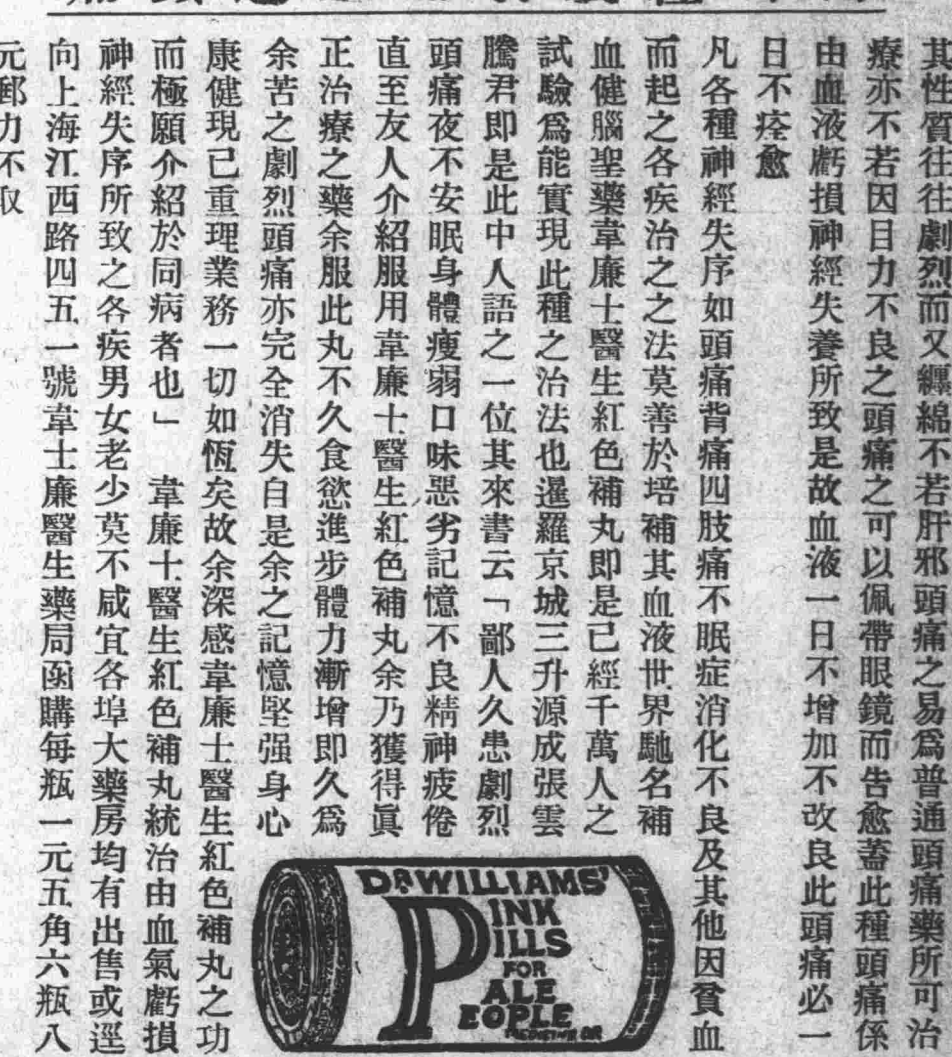 其性質往往劇烈而又纒綿不若肝邪頭痛之易爲普通頭痛藥所可治
療亦不若因目力不良之頭痛之可以佩帶眼鏡而告愈蓋此種頭痛係
由血液虧損神經失養所致是故血液一日不增加不改良此頭痛必一
日不痊愈
凡各種神經失序如頭痛背痛四肢痛不眠症消化不良及其他因貧血
而起之各疾治之之法莫善於培補其血液世界馳名補
血健腦聖藥韋廉士醫生紅色補丸即是已經千萬人之
試驗爲能實現此種之治法也暹羅京城三升源成張雲
騰君即是此中人語之一位其來書云「鄙人久患劇烈
頭痛夜不安眠身體瘦弱口味惡劣記憶不良精神疲倦
直至友人介紹服用韋廉士醫生紅色補丸余乃獲得眞
正治療之藥余服此丸不久食慾進步體力漸增即久爲
余苦之劇烈頭痛亦完全消失自是余之記憶堅强身心
康健現已重理業務一切如恆矣故余深感韋廉士醫生紅色補丸之功
而極願介紹於同病者也」 韋廉士醫生紅色補丸統治由血氣虧損
神經失序所致之各疾男女老少莫不咸宜各埠大藥房均有出售或逕
向上海江西路四五一號韋士廉醫生藥局函購每瓶一元五角六瓶八
元郵力不取
DR WILLIAMS'
PINK
PILLS
FOR
PALE
PEOPLE